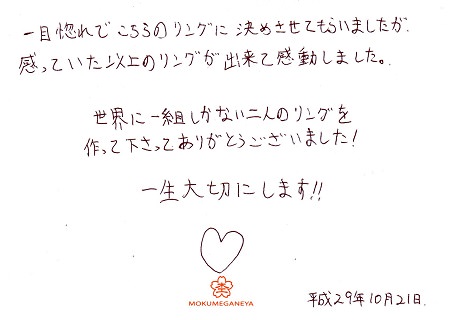 一目惚れでこちらのリングに決めさせてもらいましたが、
感っていた以上のリングが出来て感動しました。
世界に一組しかない二人のリングを
作って下さってありがとうございました!
一生大切にします!!
MOKUMEGANEYA
平成29年10月21日.